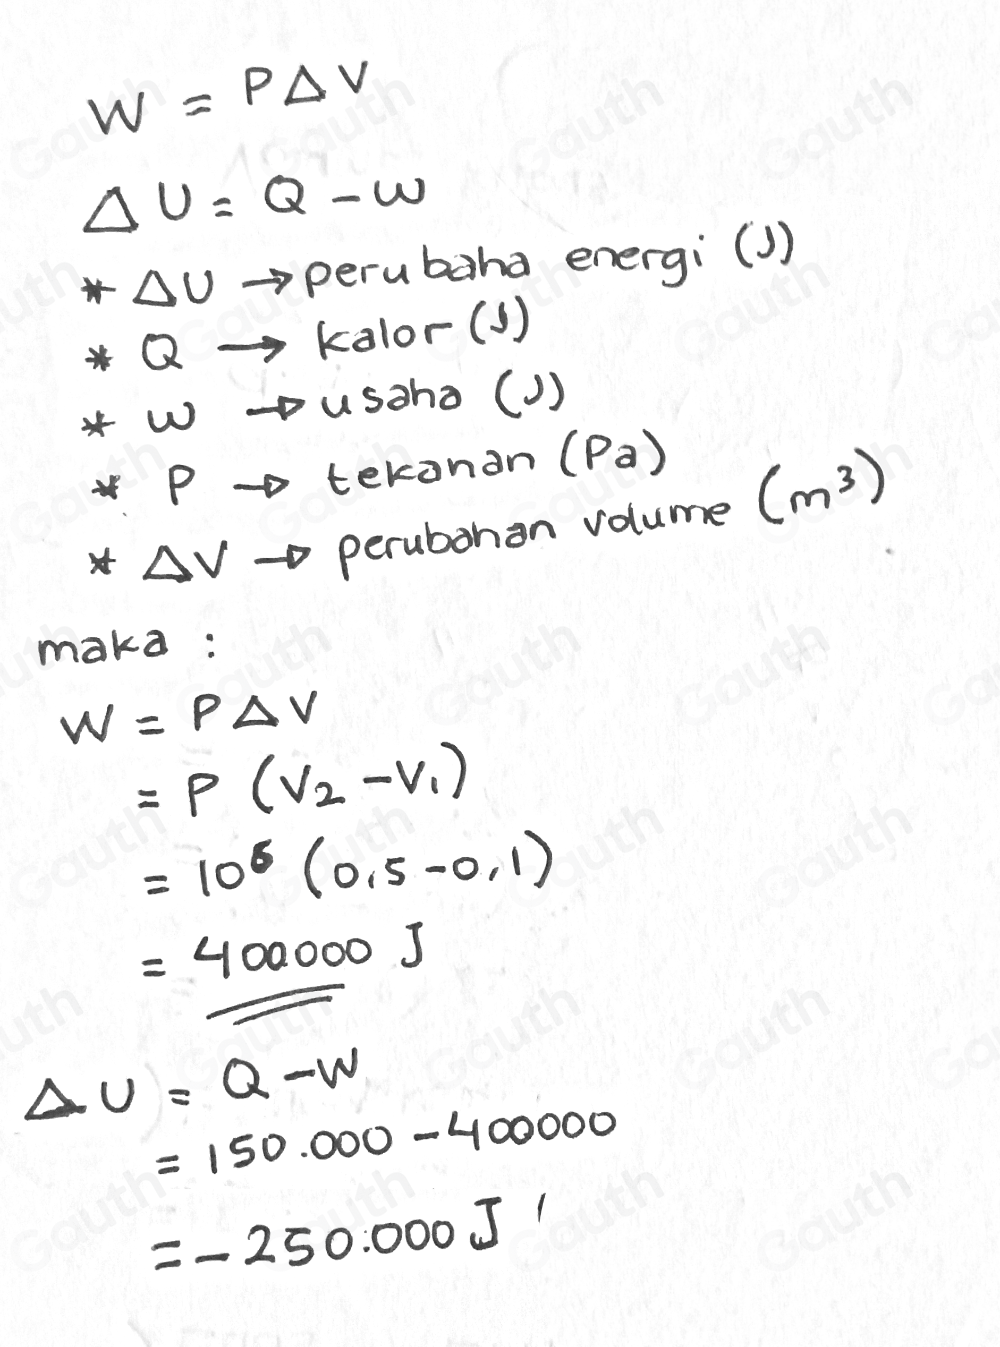 W = PΔV
ΔU = Q - W
* ΔU → perubaha energi (J)
* Q → kalor (J)
* W → usaha (J)
* P → tekanan (Pa)
* ΔV → perubahan volume (m³)
maka :
W = PΔV
= P (V₂ - V₁)
= 10⁶ (0,5 - 0,1)
= 400000 J
ΔU = Q - W
= 150.000 - 400000
= -250.000 J